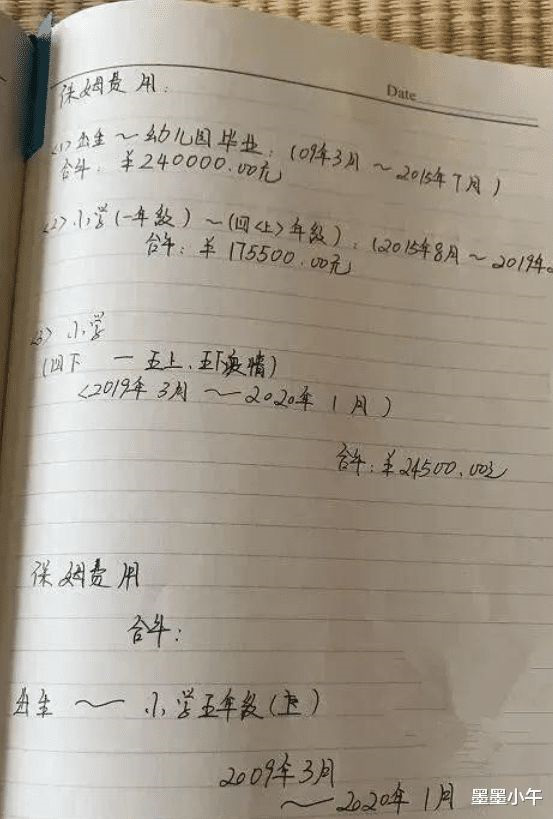 Date
保姆费用:
<1>出生～幼儿园毕业:(09年3月～2015年7月)
合计:¥240000.00元
<2>小学(一年级)～(四<上>年级):(2015年8月～2019年
合计:¥175500.00元
<3>小学
(四下一五上、五下疫情)
<2019年3月～2020年1月)
合计:¥24500.00元
保姆费用
合计:
出生～小学五年级(上)
2009年3月
～2020年1月
墨墨小午